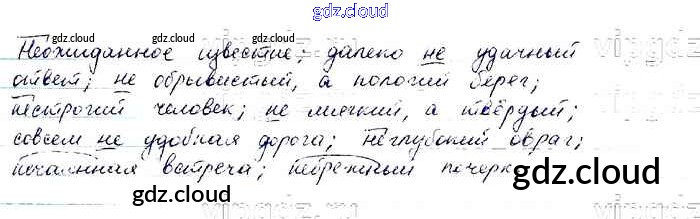 gdz.cloud
gdz.cloud
Неожиданное известие; далеко не удачный
ответ; не обрывистый, а пологий берег;
нестрогий человек; не мягкий, а твёрдый;
gdz.cloud gdz.cloud
совсем не удобная дорога; неглубокий овраг;
нечаянная встреча; небрежный почерк
gdz.cloud
gdz.cloud